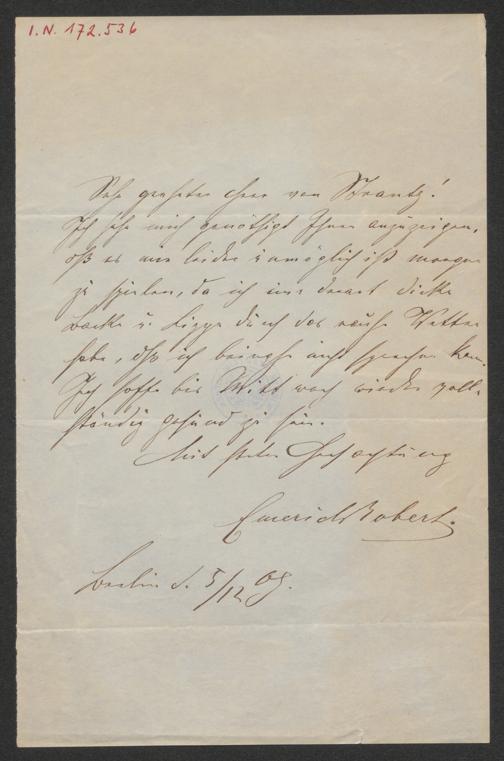 I.N. 172.536
Sehr geehrter Herr von Strantz!
Ich sehe mich genöthigt Ihnen anzuzeigen,
daß es mir leider unmöglich ist morgen
zu spielen, da ich eine derart dicke
Backe u. Lippe durch das rauhe Wetter
habe, daß ich beinahe nicht sprechen kann.
Ich hoffe bis Mittwoch wieder voll-
ständig gesund zu sein.
Mit steter Hochachtung
Emerich Robert.
Berlin d. 5/12